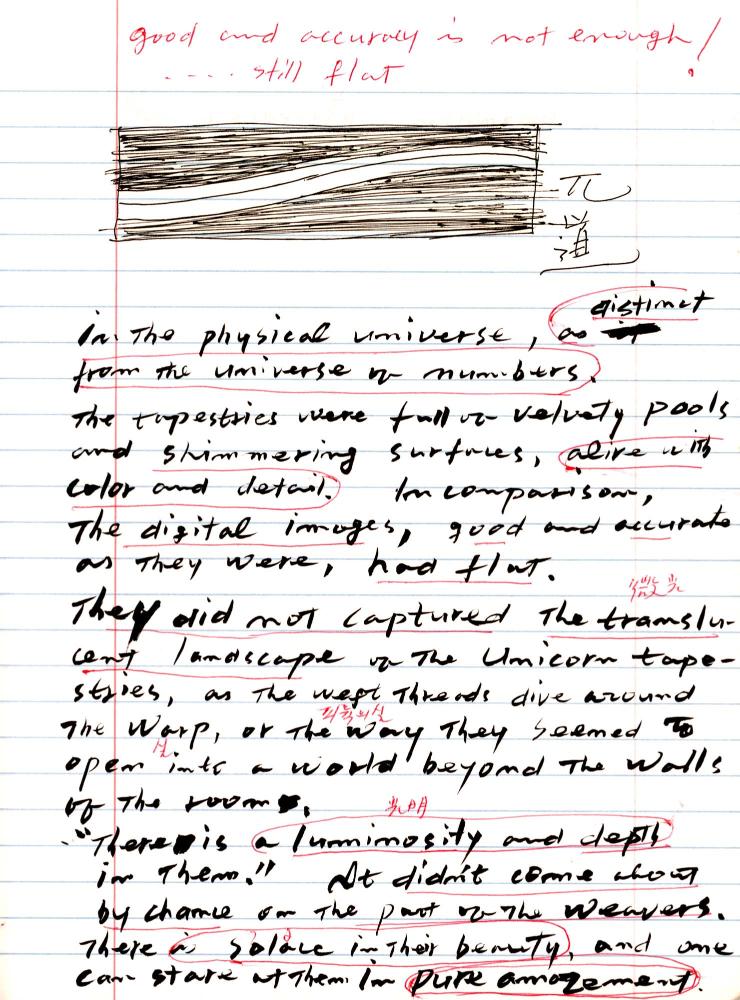 good and accuracy is not enough!
.... still flat
道
distinct
in the physical universe, as
from the universe of numbers.
The tapestries were full of velvety pools
and shimmering surfaces, alive with
color and detail. In comparison,
The digital images, good and accurate
as They were, had flat.
微光
They did not captured The translu-
cent landscape of The Unicorn tape-
stries, as The weft Threads dive around
피륙의실
The warp, or The way They seemed To
실
open into a world beyond The walls
of The room.
光明
"There is a luminosity and depth
in Them." It didn't come about
by chance on The part of The weavers.
There is solace in Their beauty, and one
can stare at Them in pure amazement.